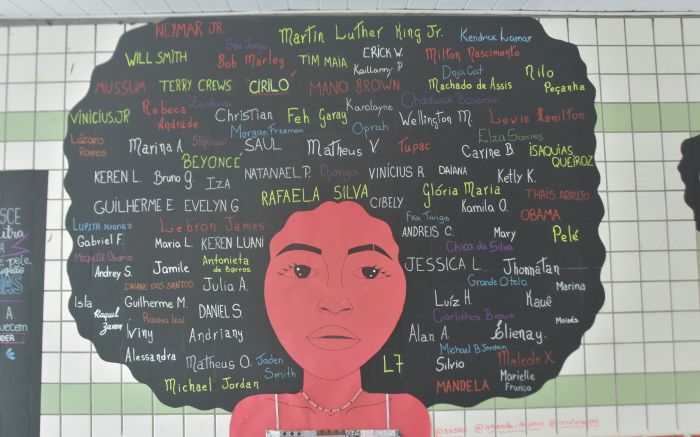 NEYMAR JR.
Martin Luther King Jr.
Kendrick Lamar
Seu Jorge
WILL SMITH
Bob Marley
TIM MAIA
ERICK W.
Milton Nascimento
Kaillanny P
Doja Cat
Nilo
Peçanha
MUSSUM
TERRY CREWS
"CIRILO"
MANO BROWN
Machado de Assis
Zendaya
Karolayne
Chadwick Boseman
VINICIUS.JR
Rebeca
Andrade
Christian
Feh Garay
Wellington M.
Lewis Hamilton
Morgan Freeman
Oprah
Elza Soares
Lázaro
Ramos
Marina A.
SAUL
Matheus V.
Tupac
Carine B.
ISAQUIAS
QUEIROZ
BEYONCÉ
KEREN L.
Bruno G.
IZA
NATANAEL P.
Django
VINÍCIUS R.
DAIANA
Ketly K.
GUILHERME E.
EVELYN G
RAFAELA SILVA
CIBELY
Glória Maria
Kamila O.
THAIS ARAUJO
LUPITA NYONG'O
Lebron James
Fka Twigs
OBAMA
Gabriel F.
Maria L.
KEREN LUNI
ANDREIS C.
Mary
Pelé
Michelle Obama
Antonieta
de Barros
Chica da Silva
Andrey S.
Jamile
JESSICA L.
Jhonnatan
DAIANE DOS SANTOS
Julia A.
Grande Otelo
Marina
Isla
Guilherme M.
DANIEL S.
Luíz H.
Kauê
Raquel
Raissa Leal
Carlinhos Brown
Moisés
Winy
Andriany
Alan A.
Elienay.
Alessandra
Matheus O.
Jaden
Smith
Michael B Jordan
L7
Silvio
Malcolm X
Michael Jordan
MANDELA
Marielle
Franco
SCE
pele.
A